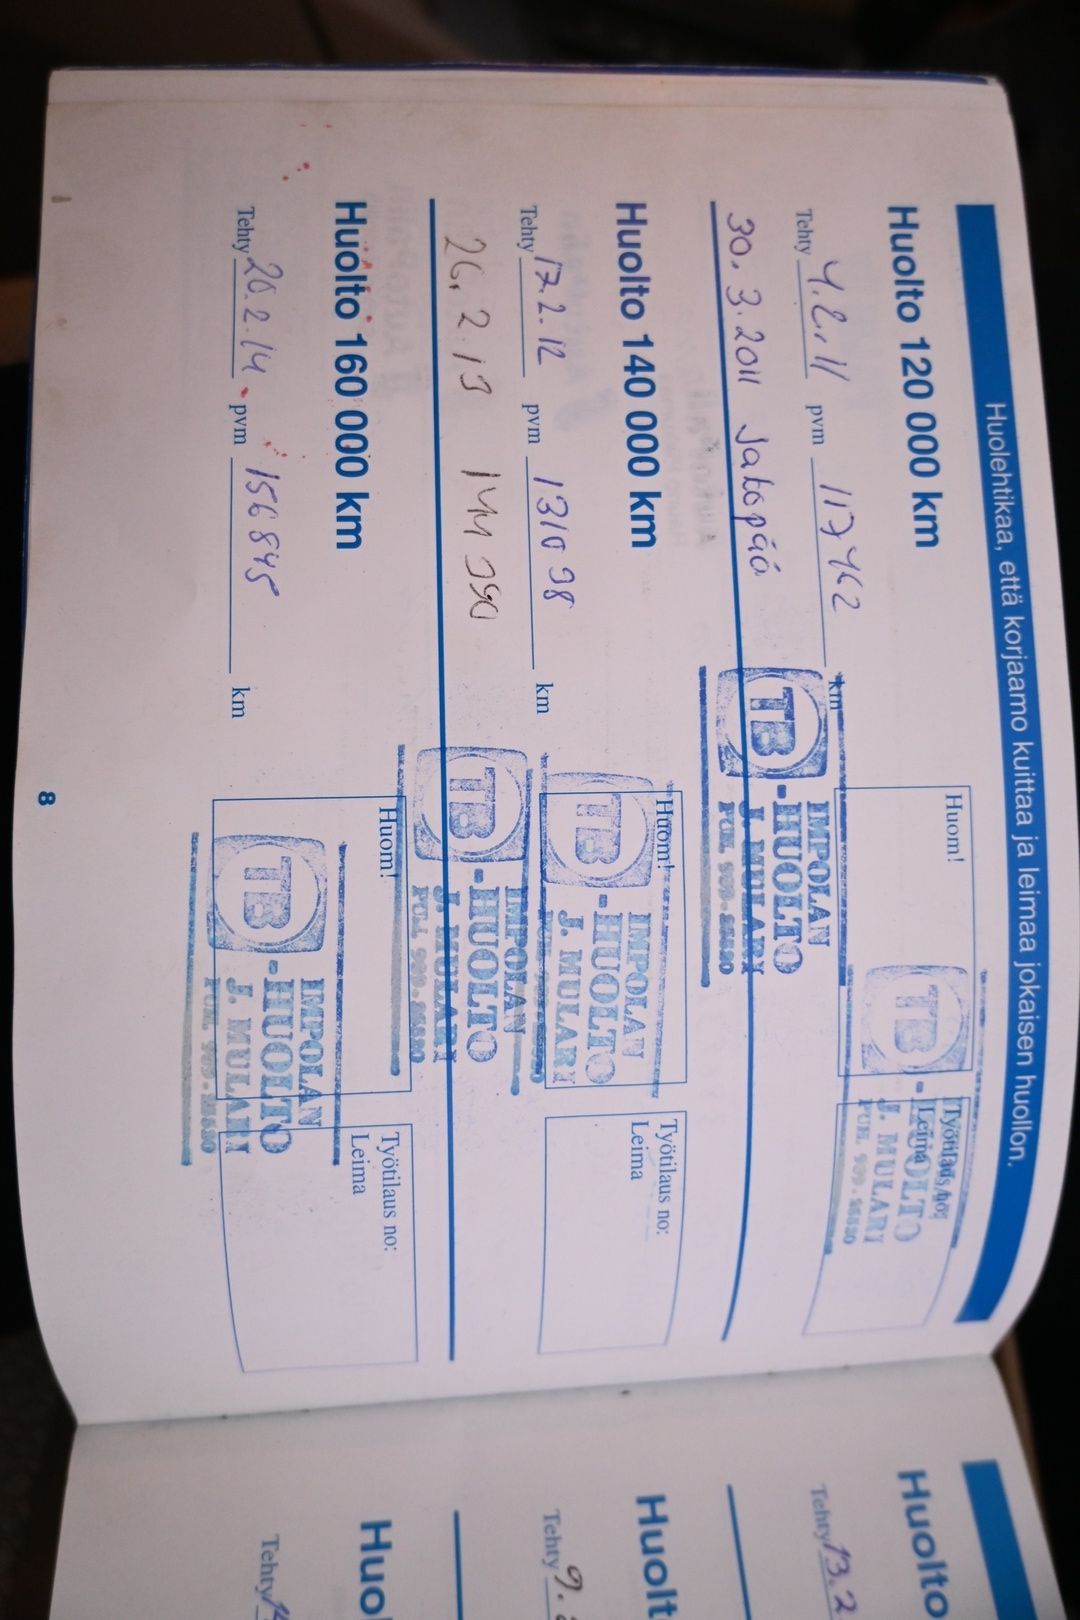 Huolehtikaa, että korjaamo kuittaa ja leimaa jokaisen huollon.
Huolto 120 000 km
Tehty 4.2.11 pvm 117462 km
Huom!
Työtilaus no:
Leima
TB -HUOLTO
J. MULARI
PUH. 989-85580
30.3.2011 Jakopää
IMPOLAN
TB -HUOLTO
J. MULARI
Huolto 140 000 km
Tehty 17.2.12 pvm 131098 km
Huom!
Työtilaus no:
Leima
IMPOLAN
TB -HUOLTO
J. MULARI
26.2.13 144390
IMPOLAN
TB -HUOLTO
J. MULARI
Huolto 160 000 km
Tehty 20.2.14 pvm 156845 km
Huom!
Työtilaus no:
Leima
IMPOLAN
TB -HUOLTO
J. MULARI
8
Huolto
Tehty 13.2
Huolt
Tehty 9.
Huo
Tehty